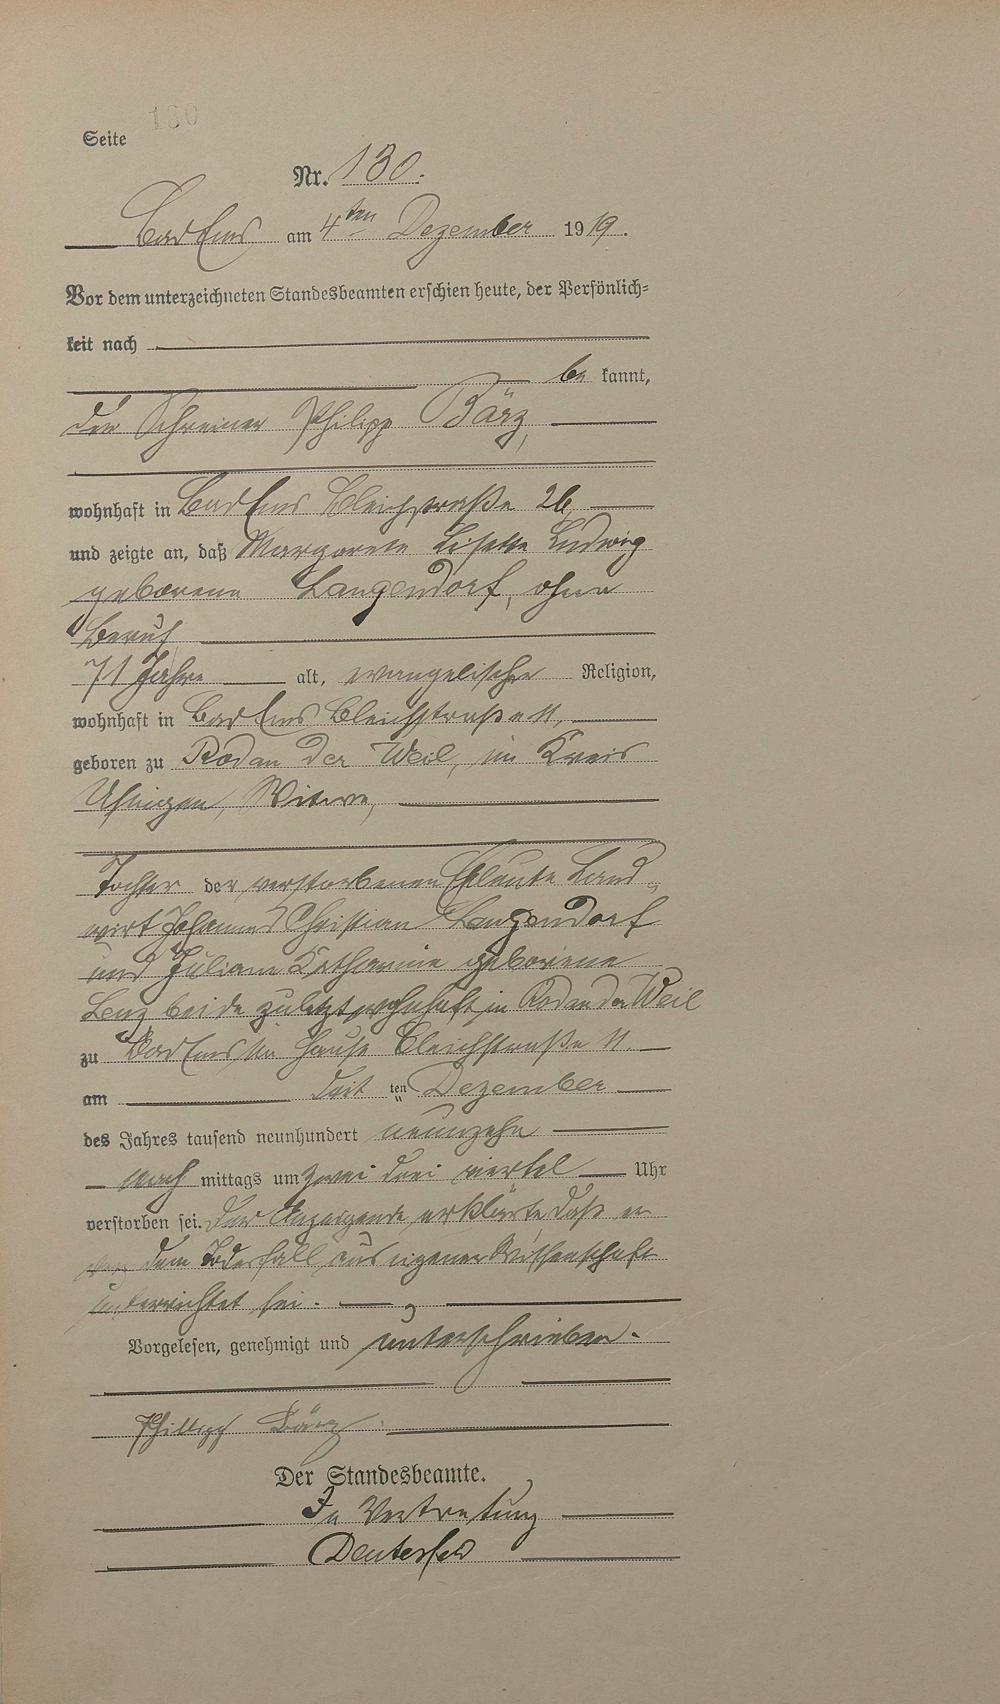 130
Seite
Nr. 130.
Bad Ems am 4ten Dezember 1919.
Vor dem unterzeichneten Standesbeamten erschien heute, der Persönlich-
keit nach
be kannt,
der Schreiner Philipp Bärz,
wohnhaft in Bad Ems Bleichstraße 26
und zeigte an, daß Margarete Lisette Ludwig
geborene Langendorf, ohne
Beruf
71 Jahre alt, evangelischer Religion,
wohnhaft in Bad Ems Bleichstraße 11,
geboren zu Rod an der Weil, im Kreis
Usingen, Witwe,
Tochter der verstorbenen Eheleute Land-
wirt Johannes Christian Langendorf
und Juliane Katharine geborene
Lenz beide zuletzt wohnhaft in Rod an der Weil
zu Bad Ems im Hause Bleichstraße 11.
am ten Dezember
des Jahres tausend neunhundert neunzehn
nach mittags um zwei drei viertel Uhr
verstorben sei. Der Anzeigende erklärte, daß er
von dem Todesfall aus eigener Wissenschaft
unterrichtet sei.
Vorgelesen, genehmigt und unterschrieben.
Philipp Bärz
Der Standesbeamte.
In Vertretung